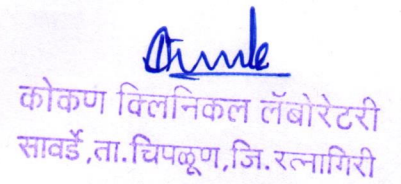 कोकण क्लिनिकल लॅबोरेटरी
सावर्डे,ता.चिपळूण,जि.रत्नागिरी